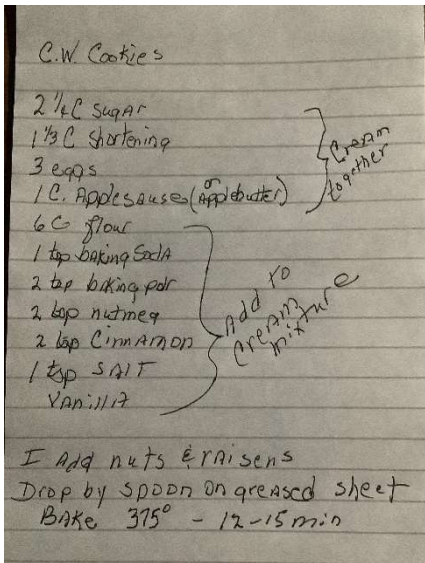 C.W. Cookies
2 1/4 C Sugar
1 1/3 C Shortening
3 eggs
1 C. Applesause (or Applebutter)
Cream together
6 C flour
1 tsp baking Soda
2 tsp baking pdr
2 tsp nutmeg
2 tsp Cinnamon
1 tsp SALT
Vanilla
Add to Cream mixture
I Add nuts & raisens
Drop by spoon on greased sheet
BAKE 375° - 12-15 min